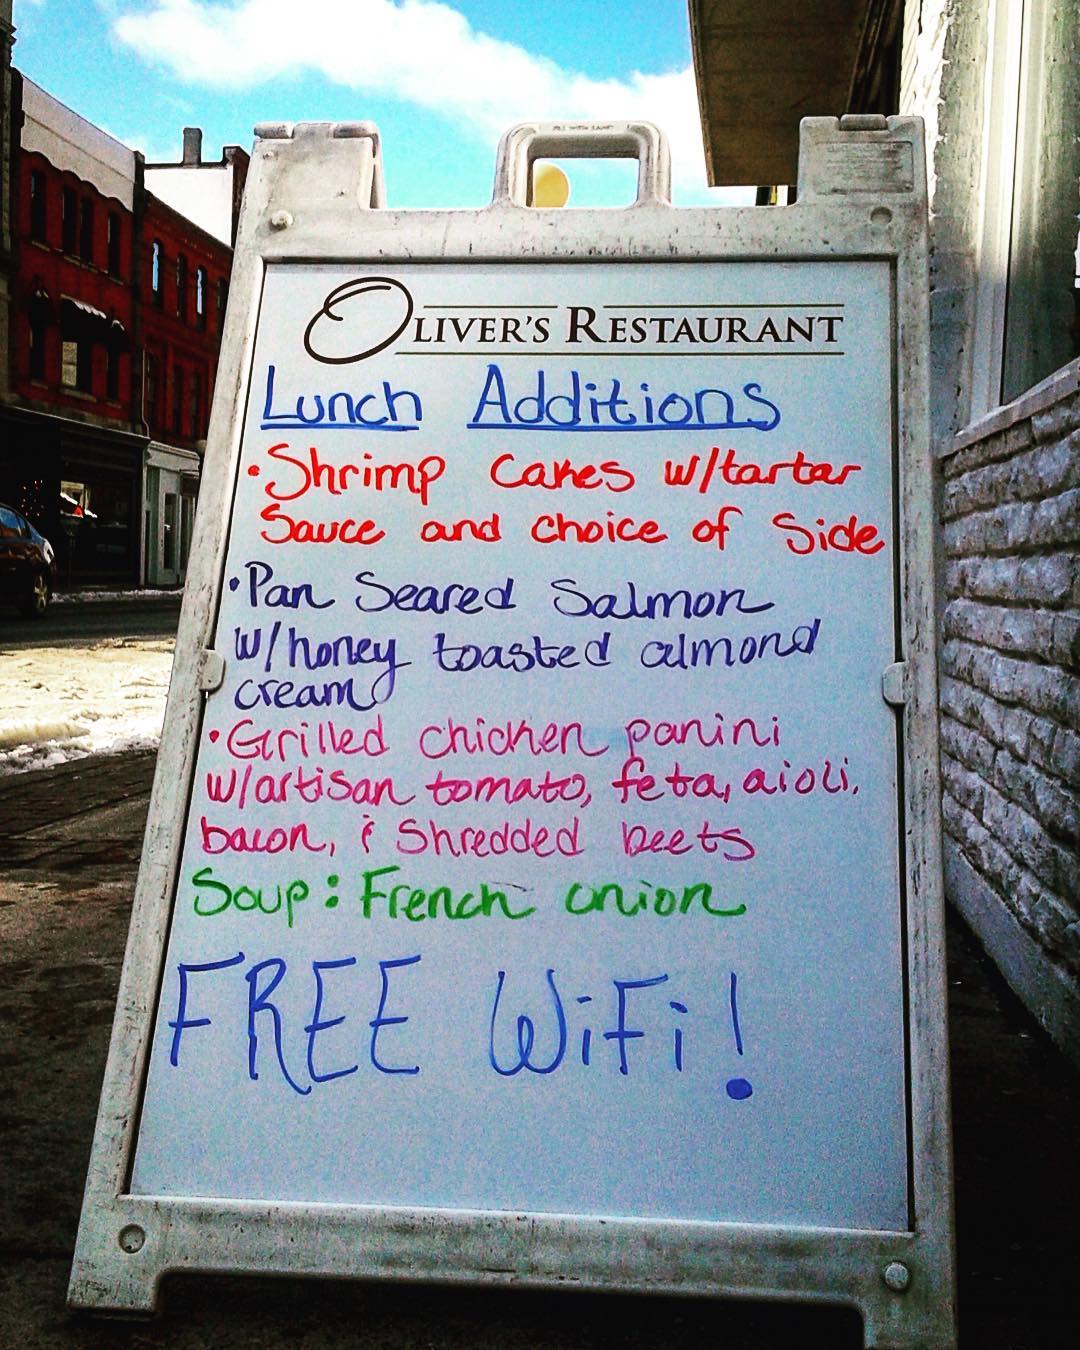 OLIVER'S RESTAURANT
Lunch Additions
• Shrimp Cakes w/tartar
Sauce and choice of Side
• Pan Seared Salmon
w/honey toasted almond
cream
• Grilled chicken panini
w/artisan tomato, feta, aioli,
bacon, & Shredded beets
Soup: French onion
FREE WiFi!